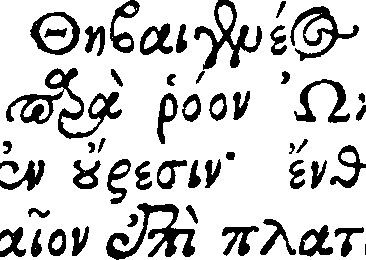 Θηβαιγενέος
παρὰ ῥόον Ὠκ
ἐν οὔρεσιν· ἔνθ
αῖον ἐπὶ πλατ